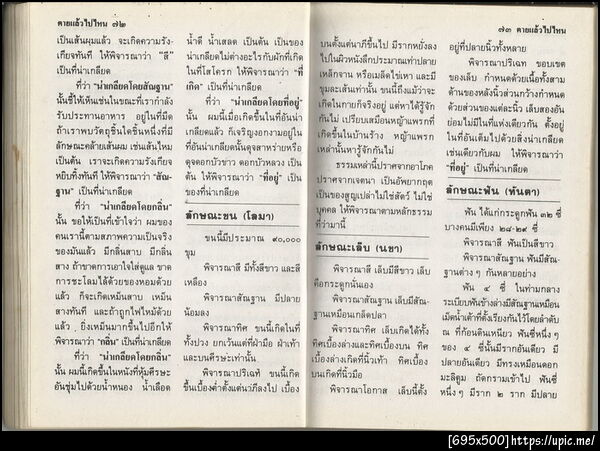 ตายแล้วไปไหน ๗๒
เป็นเส้นผมแล้ว จะเกิดความรัง-
เกียจทันที ให้พิจารณาว่า "สี"
เป็นที่น่าเกลียด
ที่ว่า "น่าเกลียดโดยสัณฐาน"
นั้นชี้ให้เห็นเช่นในขณะที่เรากำลัง
รับประทานอาหาร อยู่ในที่มืด
ถ้าเราพบวัตถุชิ้นใดชิ้นหนึ่งที่มี
ลักษณะคล้ายเส้นผม เช่นเส้นไหม
เป็นต้น เราจะเกิดความรังเกียจ
หยิบทิ้งทันที ให้พิจารณาว่า "สัณ-
ฐาน" เป็นที่น่าเกลียด
ที่ว่า "น่าเกลียดโดยกลิ่น"
นั้น ขอให้เป็นที่เข้าใจว่า ผมของ
คนเรานี้ตามสภาพความเป็นจริง
ของมันแล้ว มีกลิ่นสาบ มีกลิ่น
สาง ถ้าขาดการเอาใจใส่ดูแล ขาด
การชะโลมไล้ด้วยของหอมด้วย
แล้ว ก็จะเกิดเหม็นสาบ เหม็น
สางทันที และถ้าถูกไฟไหม้ด้วย
แล้ว ยิ่งเหม็นมากขึ้นไปอีกให้
พิจารณาว่า "กลิ่น" เป็นที่น่าเกลียด
ที่ว่า "น่าเกลียดโดยกลิ่น"
นั้น ผมนี้เกิดขึ้นในหนังที่หุ้มศีรษะ
อันชุ่มไปด้วยน้ำหนอง น้ำเลือด
น้ำดี น้ำเสลด เป็นต้น เป็นของ
น่าเกลียดไม่ต่างอะไรกับผักที่เกิด
ในที่โสโครก ให้พิจารณาว่า "ที่
เกิด" เป็นที่น่าเกลียด
ที่ว่า "น่าเกลียดโดยที่อยู่"
นั้น ผมนี้เมื่อเกิดขึ้นในที่อันน่า
เกลียดแล้ว ก็เจริญงอกงามอยู่ใน
ที่อันน่าเกลียดนั้นดุจสาหร่ายหรือ
ดุจดอกบัวขาว ดอกบัวหลวง เป็น
ต้น ให้พิจารณาว่า "ที่อยู่" เป็น
ของที่น่าเกลียด
ลักษณะขน (โลมา)
ขนนี้มีประมาณ ๙๐,๐๐๐
ขุม
พิจารณาสี มีทั้งสีขาว และสี
เหลือง
พิจารณาสัณฐาน มีปลาย
น้อมลง
พิจารณาทิศ ขนนี้เกิดในที่
ทั้งปวง ยกเว้นแต่ที่ฝ่ามือ ฝ่าเท้า
และบนศีรษะเท่านั้น
พิจารณาปริเฉท ขนนี้เกิด
ขึ้นเบื้องต่ำตั้งแต่นภีลงไป เบื้อง
๗๓ ตายแล้วไปไหน
บนตั้งแต่นาภีขึ้นไป มีรากหยั่งลง
ไปในผิวหนังลึกประมาณเท่าปลาย
เหล็กจาน หรือเมล็ดไข่เหา และมี
ขุมละเส้นเท่านั้น ขนนี้ถึงแม้ว่าจะ
เกิดในกายก็จริงอยู่ แต่หาได้รู้จัก
กันไม่ เปรียบเสมือนหญ้าแพรกที่
เกิดขึ้นในบ้านร้าง หญ้าแพรก
เหล่านั้นหารู้จักกันไม่
ธรรมเหล่านี้ปราศจากอาโภค
ปราศจากเจตนา เป็นอัพยากฤต
เป็นของสูญเปล่าไม่ใช่สัตว์ ไม่ใช่
บุคคล ให้พิจารณาตามหลักธรรม
ที่ว่ามานี้
ลักษณะเล็บ (นขา)
พิจารณาสี เล็บมีสีขาว เล็บ
คือกระดูกนั่นเอง
พิจารณาสัณฐาน เล็บมีสัณ-
ฐานเหมือนเกล็ดปลา
พิจารณาทิศ เล็บเกิดได้ทั้ง
ทิศเบื้องล่างและทิศเบื้องบน ทิศ
เบื้องล่างเกิดที่นิ้วเท้า ทิศเบื้อง
บนเกิดที่นิ้วมือ
พิจารณาโอกาส เล็บนี้ตั้ง
อยู่ที่ปลายนิ้วทั้งหลาย
พิจารณาปริเฉท ขอบเขต
ของเล็บ กำหนดด้วยเนื้อทั้งสาม
ด้านของหลังนิ้วส่วนกว้างกำหนด
ด้วยส่วนของแต่ละนิ้ว เล็บสองอัน
ย่อมไม่มีในที่แห่งเดียวกัน ตั้งอยู่
ในที่อันเต็มไปด้วยสิ่งน่าเกลียด
เช่นเดียวกับผม ให้พิจารณาว่า
"ที่อยู่" เป็นที่น่าเกลียด
ลักษณะฟัน (ทันตา)
ฟัน ได้แก่กระดูกฟัน ๓๒ ซี่
บางคนมีเพียง ๒๘-๒๙ ซี่
พิจารณาสี ฟันเป็นสีขาว
พิจารณาสัณฐาน ฟันมีสัณ-
ฐานต่าง ๆ กันหลายอย่าง
ฟัน ๔ ซี่ ในท่ามกลาง
ระเบียบฟันข้างล่างมีสัณฐานเหมือน
เม็ดน้ำเต้าที่ตั้งเรียงกันไว้โดยลำดับ
ณ ที่ก้อนดินเหนียว ฟันซี่หนึ่ง ๆ
ของ ๔ ซี่นั้นมีรากอันเดียว มี
ปลายอันเดียว มีทรงเหมือนดอก
มะลิตูม ถัดกรามเข้าไป ฟันซี่
หนึ่ง ๆ มีราก ๒ ราก มีปลาย
[695x500]https://upic.me/